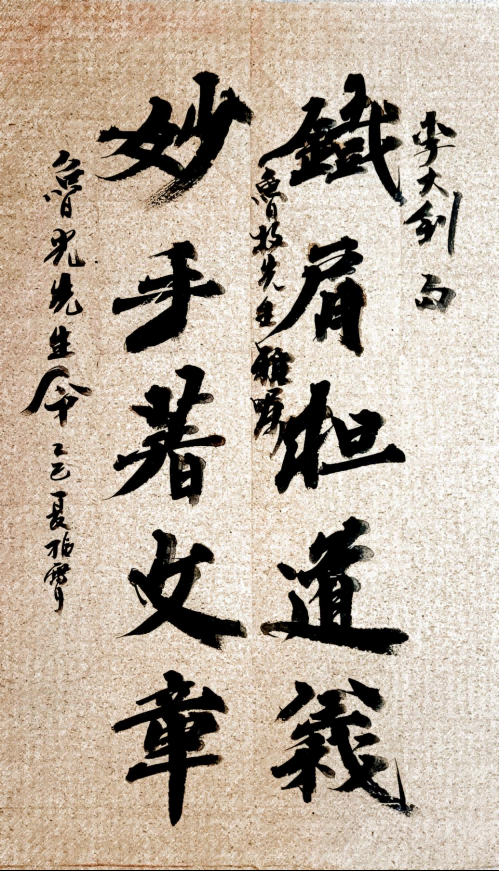 李大钊句
鐵肩担道義
魯牧先生雅嘱
妙手著文章
魯光先生命 乙夏